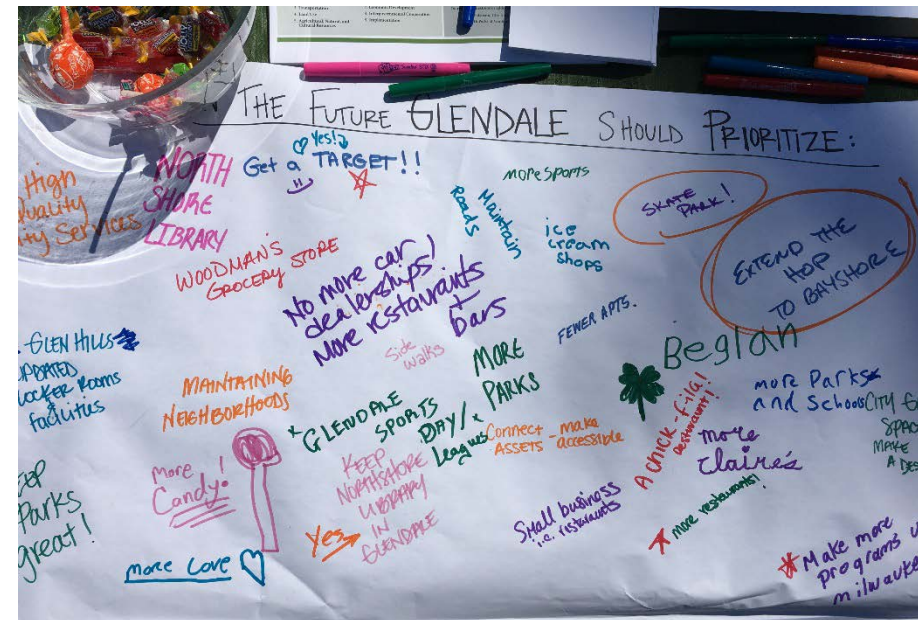 THE FUTURE GLENDALE SHOULD PRIORITIZE:
High
Quality
City Services
NORTH
SHORE
LIBRARY
Yes!
Get a TARGET!!
WOODMAN'S
GROCERY STORE
No more car
dealerships!
More restaurants
+
bars
Maintain
Roads
more sports
ice
cream
shops
SKATE
PARK!
EXTEND THE
HOP
TO BAYSHORE
FEWER APTS.
GLEN HILLS
UPDATED
LOCKER ROOMS
facilities
MAINTAINING
NEIGHBORHOODS
Side
walks
MORE
PARKS
GLENDALE
SPORTS
DAY/
Leagues
Connect
ASSETS - make
accessible
Beglan
A chick-fila!
restaurant!
more Parks
and Schools
more
Claire's
CITY
SPAC
MAKE
A DES
KEEP
Parks
great!
More
Candy!
KEEP
NORTHSHORE
LIBRARY
IN
GLENDALE
Yes
more Love
Small business
i.e. restaurants
more restaurants!
Make more
programs
milwauke